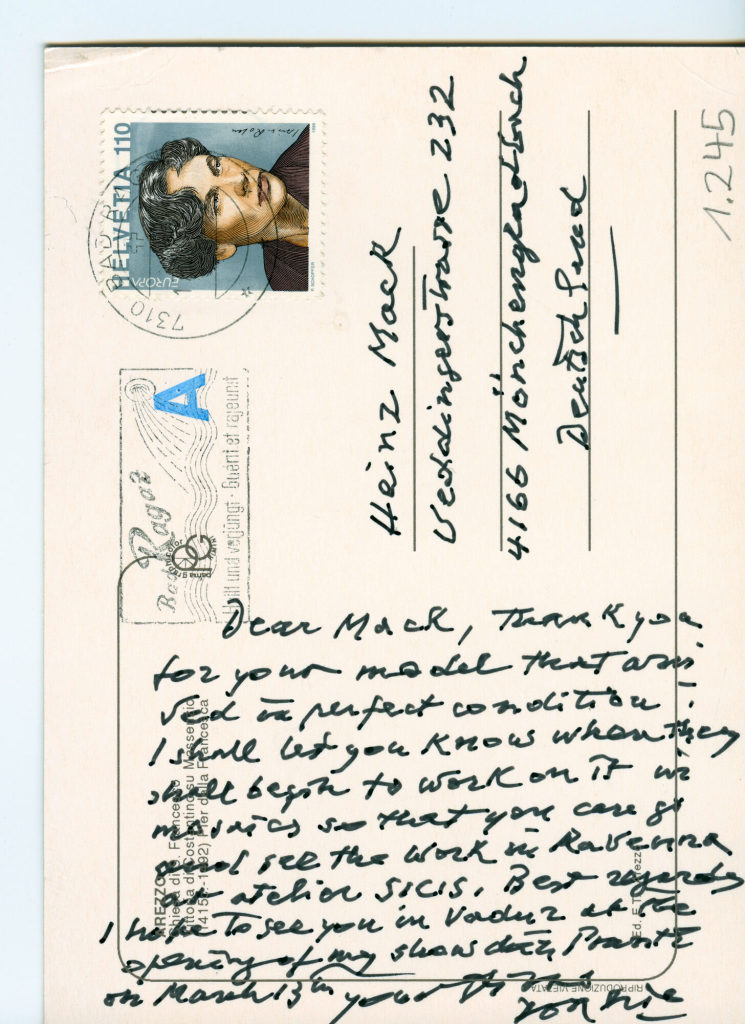 1.245
HELVETIA 110
EUROPA
7310 BAD RAGAZ
A
Bad Ragaz
Heilt und verjüngt · Guérit et rajeunit
Heinz Mack
232
4166 Mönchengladbach
Deutschland
Dear Mack, Thank you
for your model that arri-
ved in perfect condition!
I shall let you know when they
shall begin to work on it in
mosaics so that you can go
and see the work in Ravenna
at atelier SICIS. Best regards
I hope to see you in Vaduz at the
opening of my show
on March 13th your
AREZZO
Chiesa di S. Francesco
Vittoria di Costantino su Massenzio
(1415-1492) Pier della Francesca
RIPRODUZIONE VIETATA